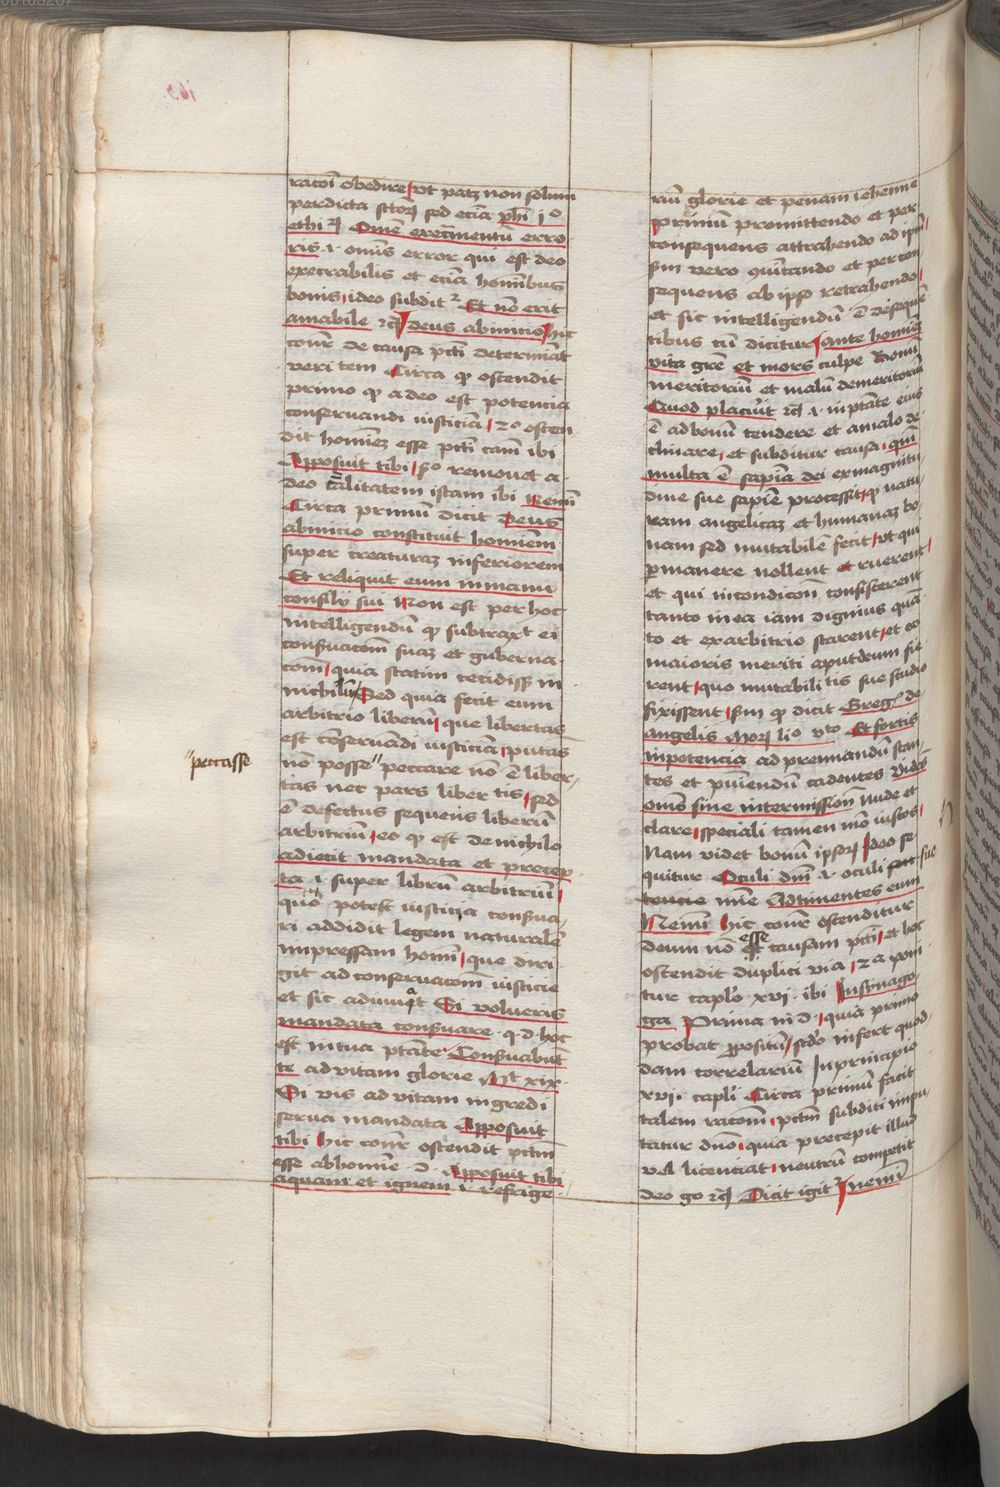 racōī obedire ut patꝫ non solum
perdicta sctōꝝ sed eciā ph̄i jº
ethi ꝝ Omē execͣmentū erro
ris .i. omīs error qui est deo
execrabilis et eciā hominibus
bonis ideo subdit² Et nō erit
amabile ꝛc̄ deus abinicio hic
conr̄ de causa pctī determinat
veri tem Circa qͦ ostendit
primo qͦ a deo est potencia
conservandi iusticiā 2º osten
dit hominēz esse pctī cām ibi
Apposuit tibi 3º removet a
deo cālitatem istam ibi Nemī
Circa primum dicit Deus
abinicio constituit hominem
super creaturaz inferiorem
Et reliquit eum in manu
consilij sui Non est per hoc
intelligendū qͦ subtraxt ei
consvacōm suaz et guberna
com quia statim cecidissꝫ in
nichilū Sed quia fecit eum
arbitrio liberū que libertas
est conservandi iusticiā putas
nō posse" peccare nō ē liber
"peccasse
tas nec pars liber tis sed
ē defectus sequens liberū
arbitriū eo qͦ est de nichilo
adiecit mandata et precep
ta .i. super librū arbitriū
quō potest iusticia consva
ri addidit legem naturalē
impressam homī que diri
git ad conservacōm iusticie
et sic adiuvat Si volueris
mandata consvare q.d. hoc
est in tua ptāte Consvabūt
te ad vitam glorie Mt xix
Si vis ad vitam ingredi
serva mandata Apposuit
tibi hic conr̄ ostendit pctm̄
esse ab homīe .d. Apposuit tibi
aquam et ignem .i. refrige
riū glorie et penam iehenne
primū promittendo et per
consequens attrahendo ad ipm̄
sm vero cōitando et per con
sequens ab ipso retrahendo
et sic intelligendū ē de sequē
tibus cū dicitur ante homiēz
vita grē et mors culpe Bonū
meritoriū et malū demeritoriū
Quod placuit ꝛc̄ .i. in ptāte eius
ē ad bonū tendere et a malo de
clinare et subditur causa qm̄
multa ē sapīa dei ex magnitu
dine sue sapīe processit qͦ natu
ram angelicaz et humanaz bo
nam sed mutabilē fecit ut qui
pͣmanere nollent et ruerent
et qui in condicōni consisterent
tanto in ea iam dignius quā
to et ex arbitrio starent et eo
maioris meriti aput deum fie
rent quo mutabili tis sue studio
fixissent sm qͦ dicit Greg² de
angelis Morꝝ liº vto Et fortis
in potencia ad premiandū stan
tes et puniendū cadentes Vides
omēs sine intermissiōn Nude et
clare speciali tamen mō iustos
Nam videt bonū ipsoꝝ Ideo se
quitur Oculi dnī .i. oculi sue
tencie mīe Ad timentes eum
Nemī hic conr̄ ostenditur
deum nō esse causam pctī et hoc
ostendit duplici via 2ª poni
tur caplō xvi. ibi In synago
ga Prima in d. quia primo
probat ꝓpositū scdo infert quod
dam correlariū In principio
xvi. caplī Circa primū facit
talem racōm pctm subditi impu
tatur dnō quia precepit illud
vel licenciat neutrū competit
deo go ꝛc̄ Dicit igit² Nemī